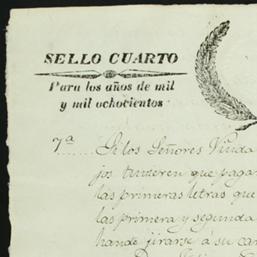 SELLO CUARTO
Para los años de mil
y mil ochocientos
7ª Si los Señores Viuda
jos tuvieren que pagar
las primeras letras que
las primera y segunda
hande jirarse á su car